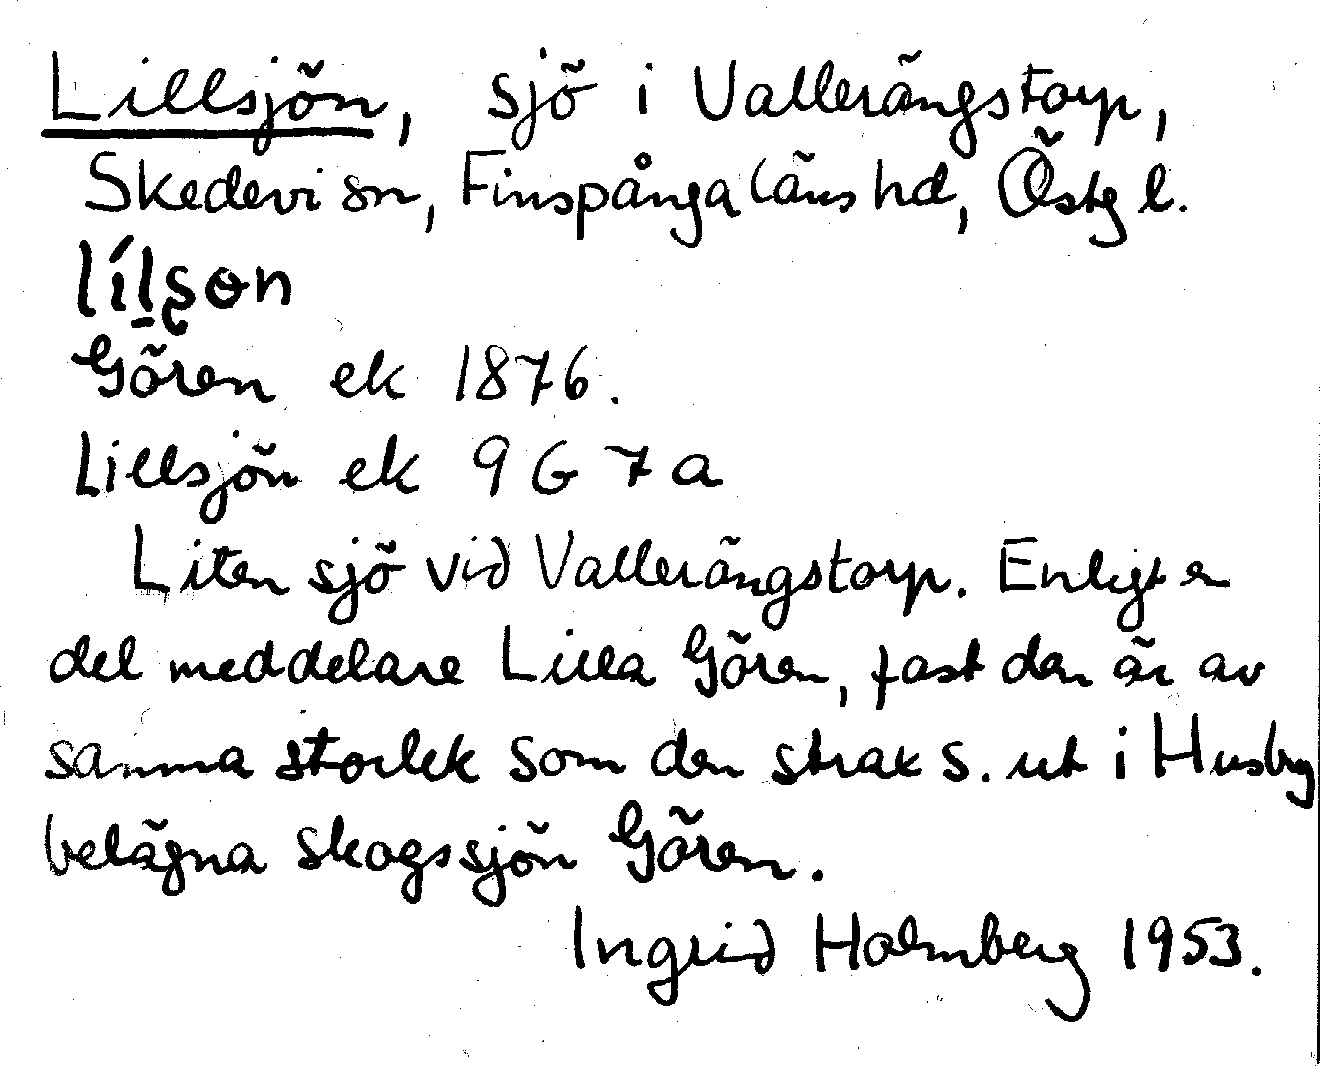 Lillsjön, sjö i Vallerängstorp,
Skedevi sn, Finspånga läns hd, Östg l.
Gören ek 1876.
Lillsjön ek 9 G 7 a
Liten sjö vid Vallerängstorp. Enligt en
del meddelare Lilla Gören, fast den är av
samma storlek som den strax s. ut i Husby
belägna skogssjön Gören.
Ingrid Holmberg 1953.